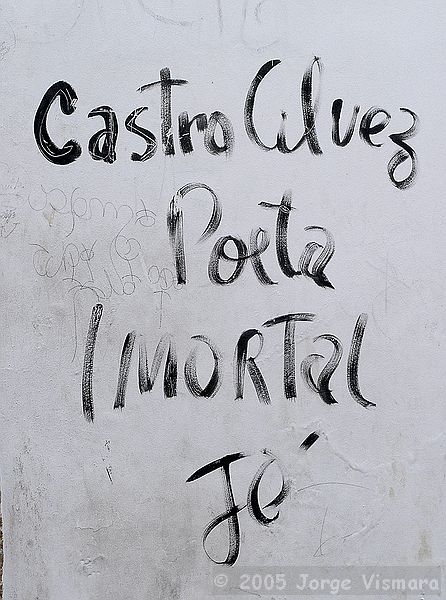 Castro Alvez
Poeta
IMORTal
Jé
© 2005 Jorge Vismara